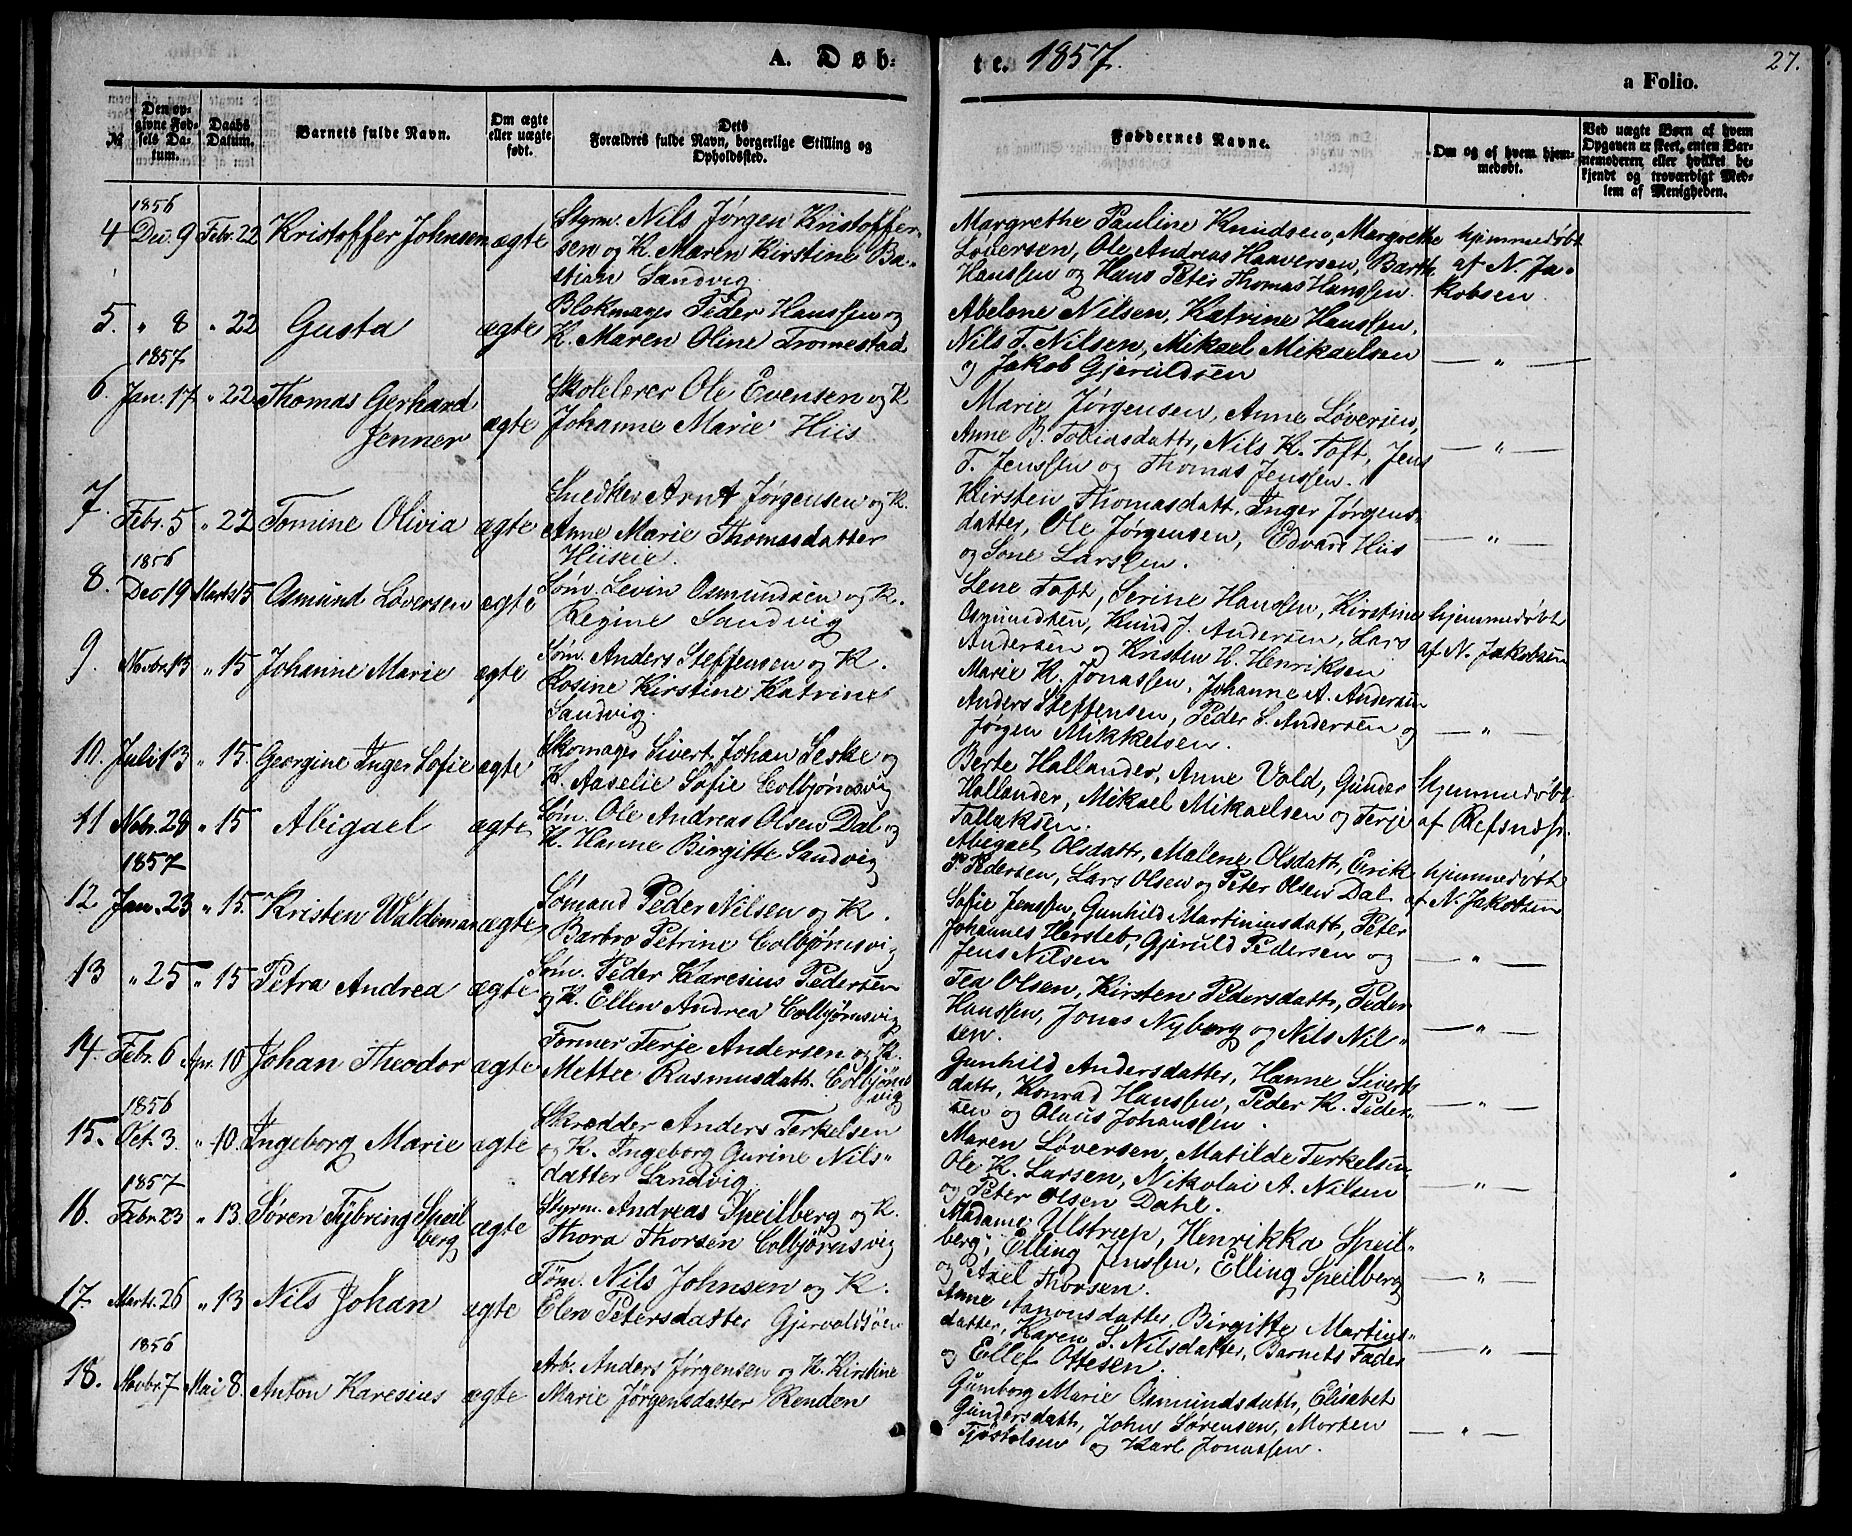 A. Døb-
te. 1857.
27.
a Folio.
№
Den op-
givne Fød-
sels Da-
tum.
Daabs
Datum.
Barnets fulde Navn.
Om ægte
eller uægte
født.
Dets
Forældres fulde Navn, borgerlige Stilling og
Opholdssted.
Faddernes Navne.
Om og af hvem hjem-
medøbt.
Ved uægte Børn af hvem
Opgaven er skeet, enten Bar-
nemoderen, eller hvilket be-
kjendt og troværdigt Med-
lem af Menigheden.
1856
4 Dec. 9 Febr. 22 Kristoffer Johnsen ægte
Styrm. Nils Jørgen Kristoffer-
sen og K. Maren Kirstine Ba-
stian Sandvig.
Margrethe Pauline Knudsen, Margrethe
Løversen, Ole Andreas Haaversen, Barth.
Hanssen og Hans Peter Thomas Hanssen.
hjemmedøbt
af N. Ja-
kobsen.
5. " 8 " 22 Gusta ægte
Blokmager Peder Hanssen og
K. Maren Oline Tromestad
Abelone Nilsen, Katrine Hanssen,
Nils T. Nilsen, Mikael Mikaelsen
og Jakob Gjeruldsen
— " —
1857
6. Jan. 17 " 22 Thomas Gerhard
Jenner ægte
Skolelærer Ole Evensen og K
Johanne Marie Hiis
Marie Jørgensen, Anne Løversen,
Anne B. Tobiasdattr, Nils K. Toft, Jens
T. Jenssen og Thomas Jenssen.
— " —
7. Febr. 5 " 22 Tomine Olivia ægte
Snedker Arnt Jørgensen og K.
Anne Marie Thomasdatter
Hiiseie.
Kirsten Thomasdatt, Inger Jørgens-
datter, Ole Jørgensen, Edvard Hiis
og Sone Larssen.
— " —
1856
8. Dec 19 Marts 15 Osmund Løversen ægte
Søm. Levin Osmundsen og K.
Regine Sandvig
Lene Toft, Serine Hanssen, Kirstine
Osmundsen, Knud J. Andersen, Lars
Andersen og Kristen H. Henriksen
hjemmedøbt
af N. Jakobsen
9. Novbr. 13 " 15 Johanne Marie ægte
Søm. Anders Steffensen og K.
Rosine Kirstine Katrine
Sandvig.
Marie K. Jonassen, Johanne A. Andersen
Anders Steffensen, Peder S. Andersen og
Jørgen Mikkelsen.
— " —
10. Juli 13 " 15. Georgine Inger Sofie ægte
Skomager Sivert Johan Seske og
K. Aaselie Sofie Colbjørnsvig
Berte Hallander, Anne Vold, Gunder
Hallander, Mikael Mikaelsen og Terje
Tallaksen.
Hjemmedøbt
af Refsnæs.
11 Nobr. 28 " 15 Abigael ægte
Søm. Ole Andreas Olsen Dal og
K. Hanne Birgitte Sandvig
Abegael Olsdattr, Malene Olsdattr, Erik
P. Pedersen, Lars Olsen og Peter Olsen Dal
hjemmedøbt
af N. Jakobsen
1857
12. Jan. 23 " 15. Kristen Waldemar ægte
Sømand Peder Nilsen og K.
Barbro Petrine Colbjørnsvig
Sofie Jenssen, Gunhild Martiniusdattr, Peter
Johannes Hersleb, Gjeruld Pedersen og
Jens Nilsen
— " —
13 " 25 " 15 Petra Andrea ægte
Søm. Peder Karesius Pedersen
og K. Ellen Andrea Colbjørnsvig
Tea Olsen, Kirsten Pedersdattr, Peder
Hanssen, Jonas Nyberg og Nils Nil-
sen.
— " —
14. Febr. 6 Apr. 10 Johan Theodor ægte
Former Terje Andersen og K.
Mettee Rasmusdatt. Colbjørns
vig
Gunhild Andersdatter, Hanne Siverts
dattr, Konrad Hanssen, Peder K. Peder-
sen og Olaus Johanssen.
— " —
1856
15. Oct. 3 " 10. Ingeborg Marie ægte
Skrædder Anders Terkelsen
og K. Ingeborg Gurine Nils-
datter Sandvig
Maren Løversen, Matilde Terkelsen,
Ole K. Larsen, Nikolai A. Nilsen
og Peter Olsen Dahl.
— " —
1857
16. Febr. 23 " 13. Søren Tybring Speil
berg ægte
Styrm. Andreas Speilberg og K.
Thora Thorsen Colbjørnsvig
Madame Ulstrup, Henrikka Speil-
berg, Elling Jenssen, Elling Speilberg
og Axel Thorsen.
— " —
17. Marts. 26 " 13 Nils Johan ægte
Tøm. Nils Johnsen og K.
Elen Petersdatter Gjervoldsøen
Anne Aanonsdatter, Birgitte Martins-
datter, Karen S. Nilsdatter, Barnets Fader
og Ellef Ottesen.
— " —
1856
18. Novbr. 7 Mai 8. Anton Karesius ægte
Arb. Anders Jørgensen og K. Kirstine
Marie Jørgensdatter Renden
Gumborg Marie Osmundsdattr, Elisabet
Gundersdattr, John Sørensen, Morten
Tjøstolsen og Karl Jonassen.
— " —